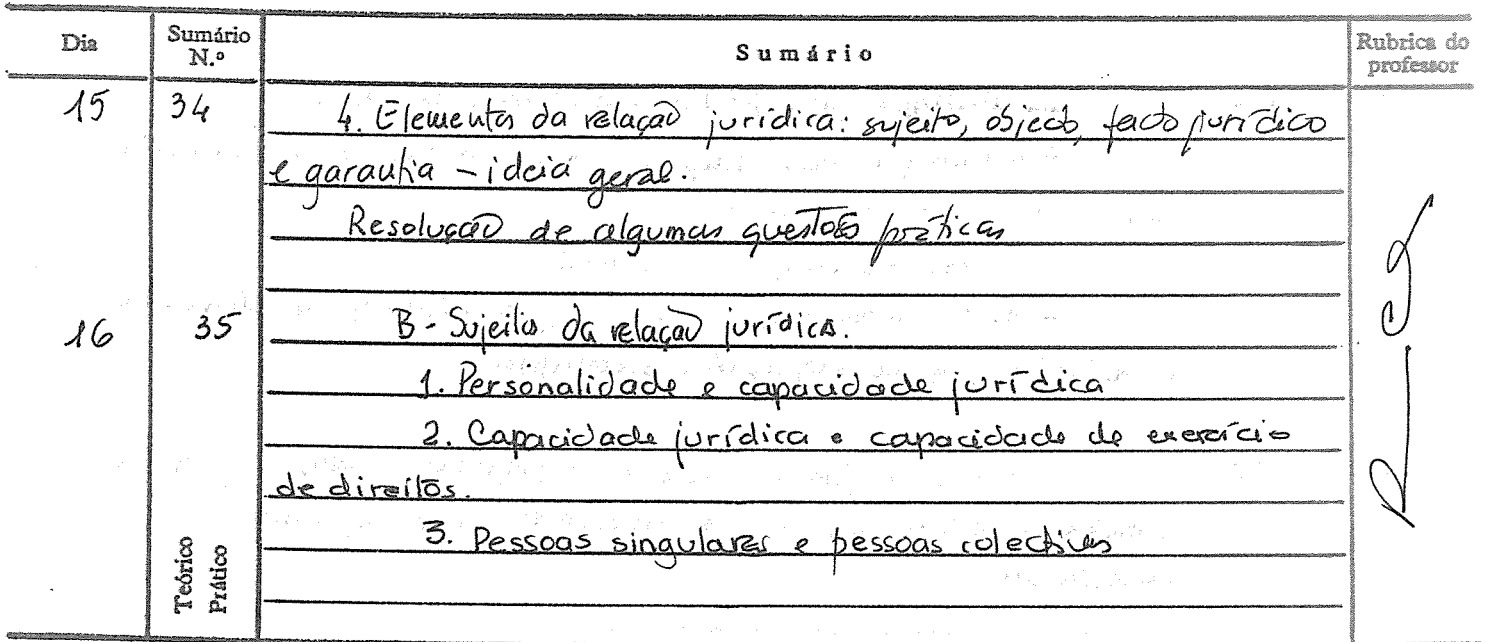 Dia Sumário N.º Sumário Rubrica do professor
15 34 4. Elementos da relação jurídica: sujeito, objecto, facto jurídico
e garantia – ideia geral.
Resolução de algumas questões práticas
16 35 B - Sujeitos da relação jurídica.
1. Personalidade e capacidade jurídica
2. Capacidade jurídica e capacidade de exercício
de direitos.
3. Pessoas singulares e pessoas colectivas
Teórico
Prático